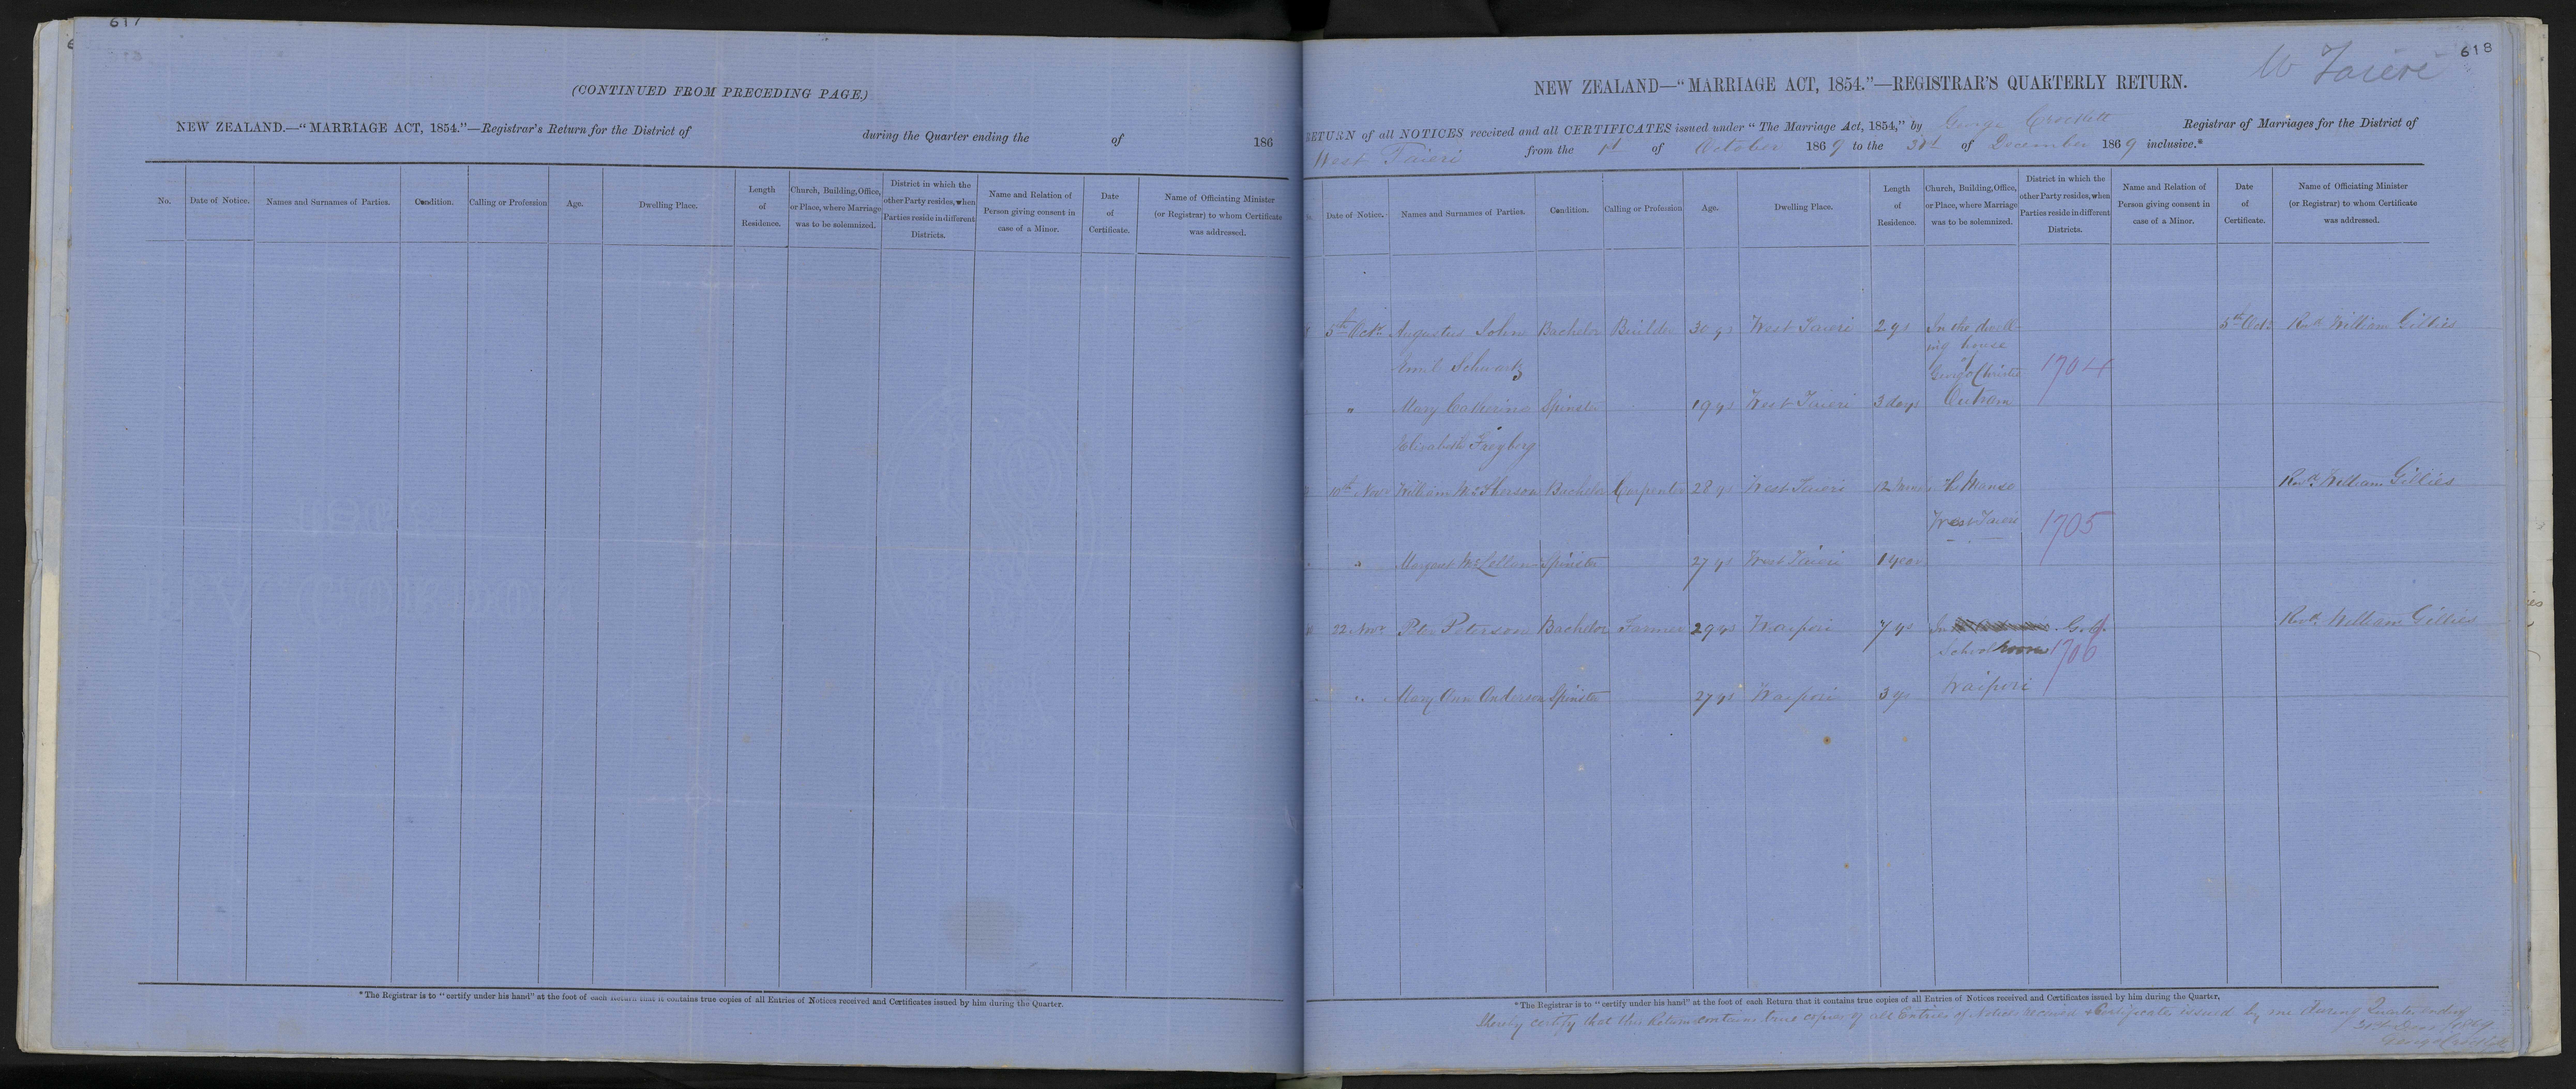 617
(CONTINUED FROM PRECEDING PAGE.)
NEW ZEALAND.—"MARRIAGE ACT, 1854."—Registrar's Return for the District of during the Quarter ending the of 186
No. Date of Notice. Names and Surnames of Parties. Condition. Calling or Profession Age. Dwelling Place. Length of Residence. Church, Building, Office, or Place, where Marriage was to be solemnized. District in which the other Party resides, when Parties reside in different Districts. Name and Relation of Person giving consent in case of a Minor. Date of Certificate. Name of Officiating Minister (or Registrar) to whom Certificate was addressed.
*The Registrar is to "certify under his hand" at the foot of each Return that it contains true copies of all Entries of Notices received and Certificates issued by him during the Quarter.
618
W Taieri
NEW ZEALAND—"MARRIAGE ACT, 1854."—REGISTRAR'S QUARTERLY RETURN.
RETURN of all NOTICES received and all CERTIFICATES issued under "The Marriage Act, 1854," by George Crockett Registrar of Marriages for the District of
West Taieri from the 1st of October 1869 to the 31st of December 1869 inclusive.*
Date of Notice. Names and Surnames of Parties. Condition. Calling or Profession Age. Dwelling Place. Length of Residence. Church, Building, Office, or Place, where Marriage was to be solemnized. District in which the other Party resides, when Parties reside in different Districts. Name and Relation of Person giving consent in case of a Minor. Date of Certificate. Name of Officiating Minister (or Registrar) to whom Certificate was addressed.
5th Octr Augustus John Bachelor Builder 30 ys West Taieri 2 ys In the dwell- 5th Octr Revd William Gillies
ing house
Emil Schwartz of
George Christie 1704
" Mary Catherine Spinster 19 ys West Taieri 3 days Outram
Elizabeth Freyberg
10th Novr William McPherson Bachelor Carpenter 28 ys West Taieri The Manse Revd William Gillies
West Taieri 1705
" Margaret McLellan Spinster 27 ys West Taieri 1 year
22 Novr Peter Peterson Bachelor Farmer 29 ys Waipori 7 ys In Revd William Gillies
School 1706
" Mary Ann Anderson Spinster 27 ys Waipori 3 ys Waipori
*The Registrar is to "certify under his hand" at the foot of each Return that it contains true copies of all Entries of Notices received and Certificates issued by him during the Quarter.
I hereby certify that this Return contains true copies of all Entries of Notices received & Certificates issued by me during Quarter ending
31st Decr 1869
George Crockett